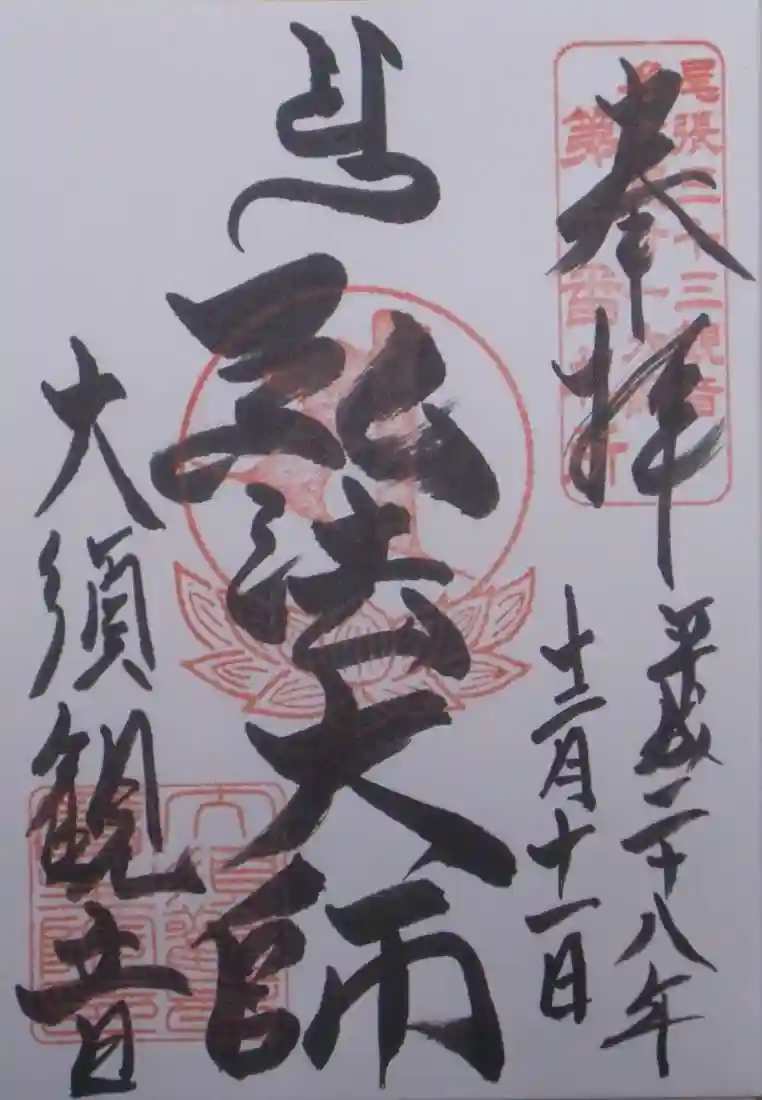 奉拝
尾張三十三観音
平成二十八年
十二月十一日
弘法大師
大須観音